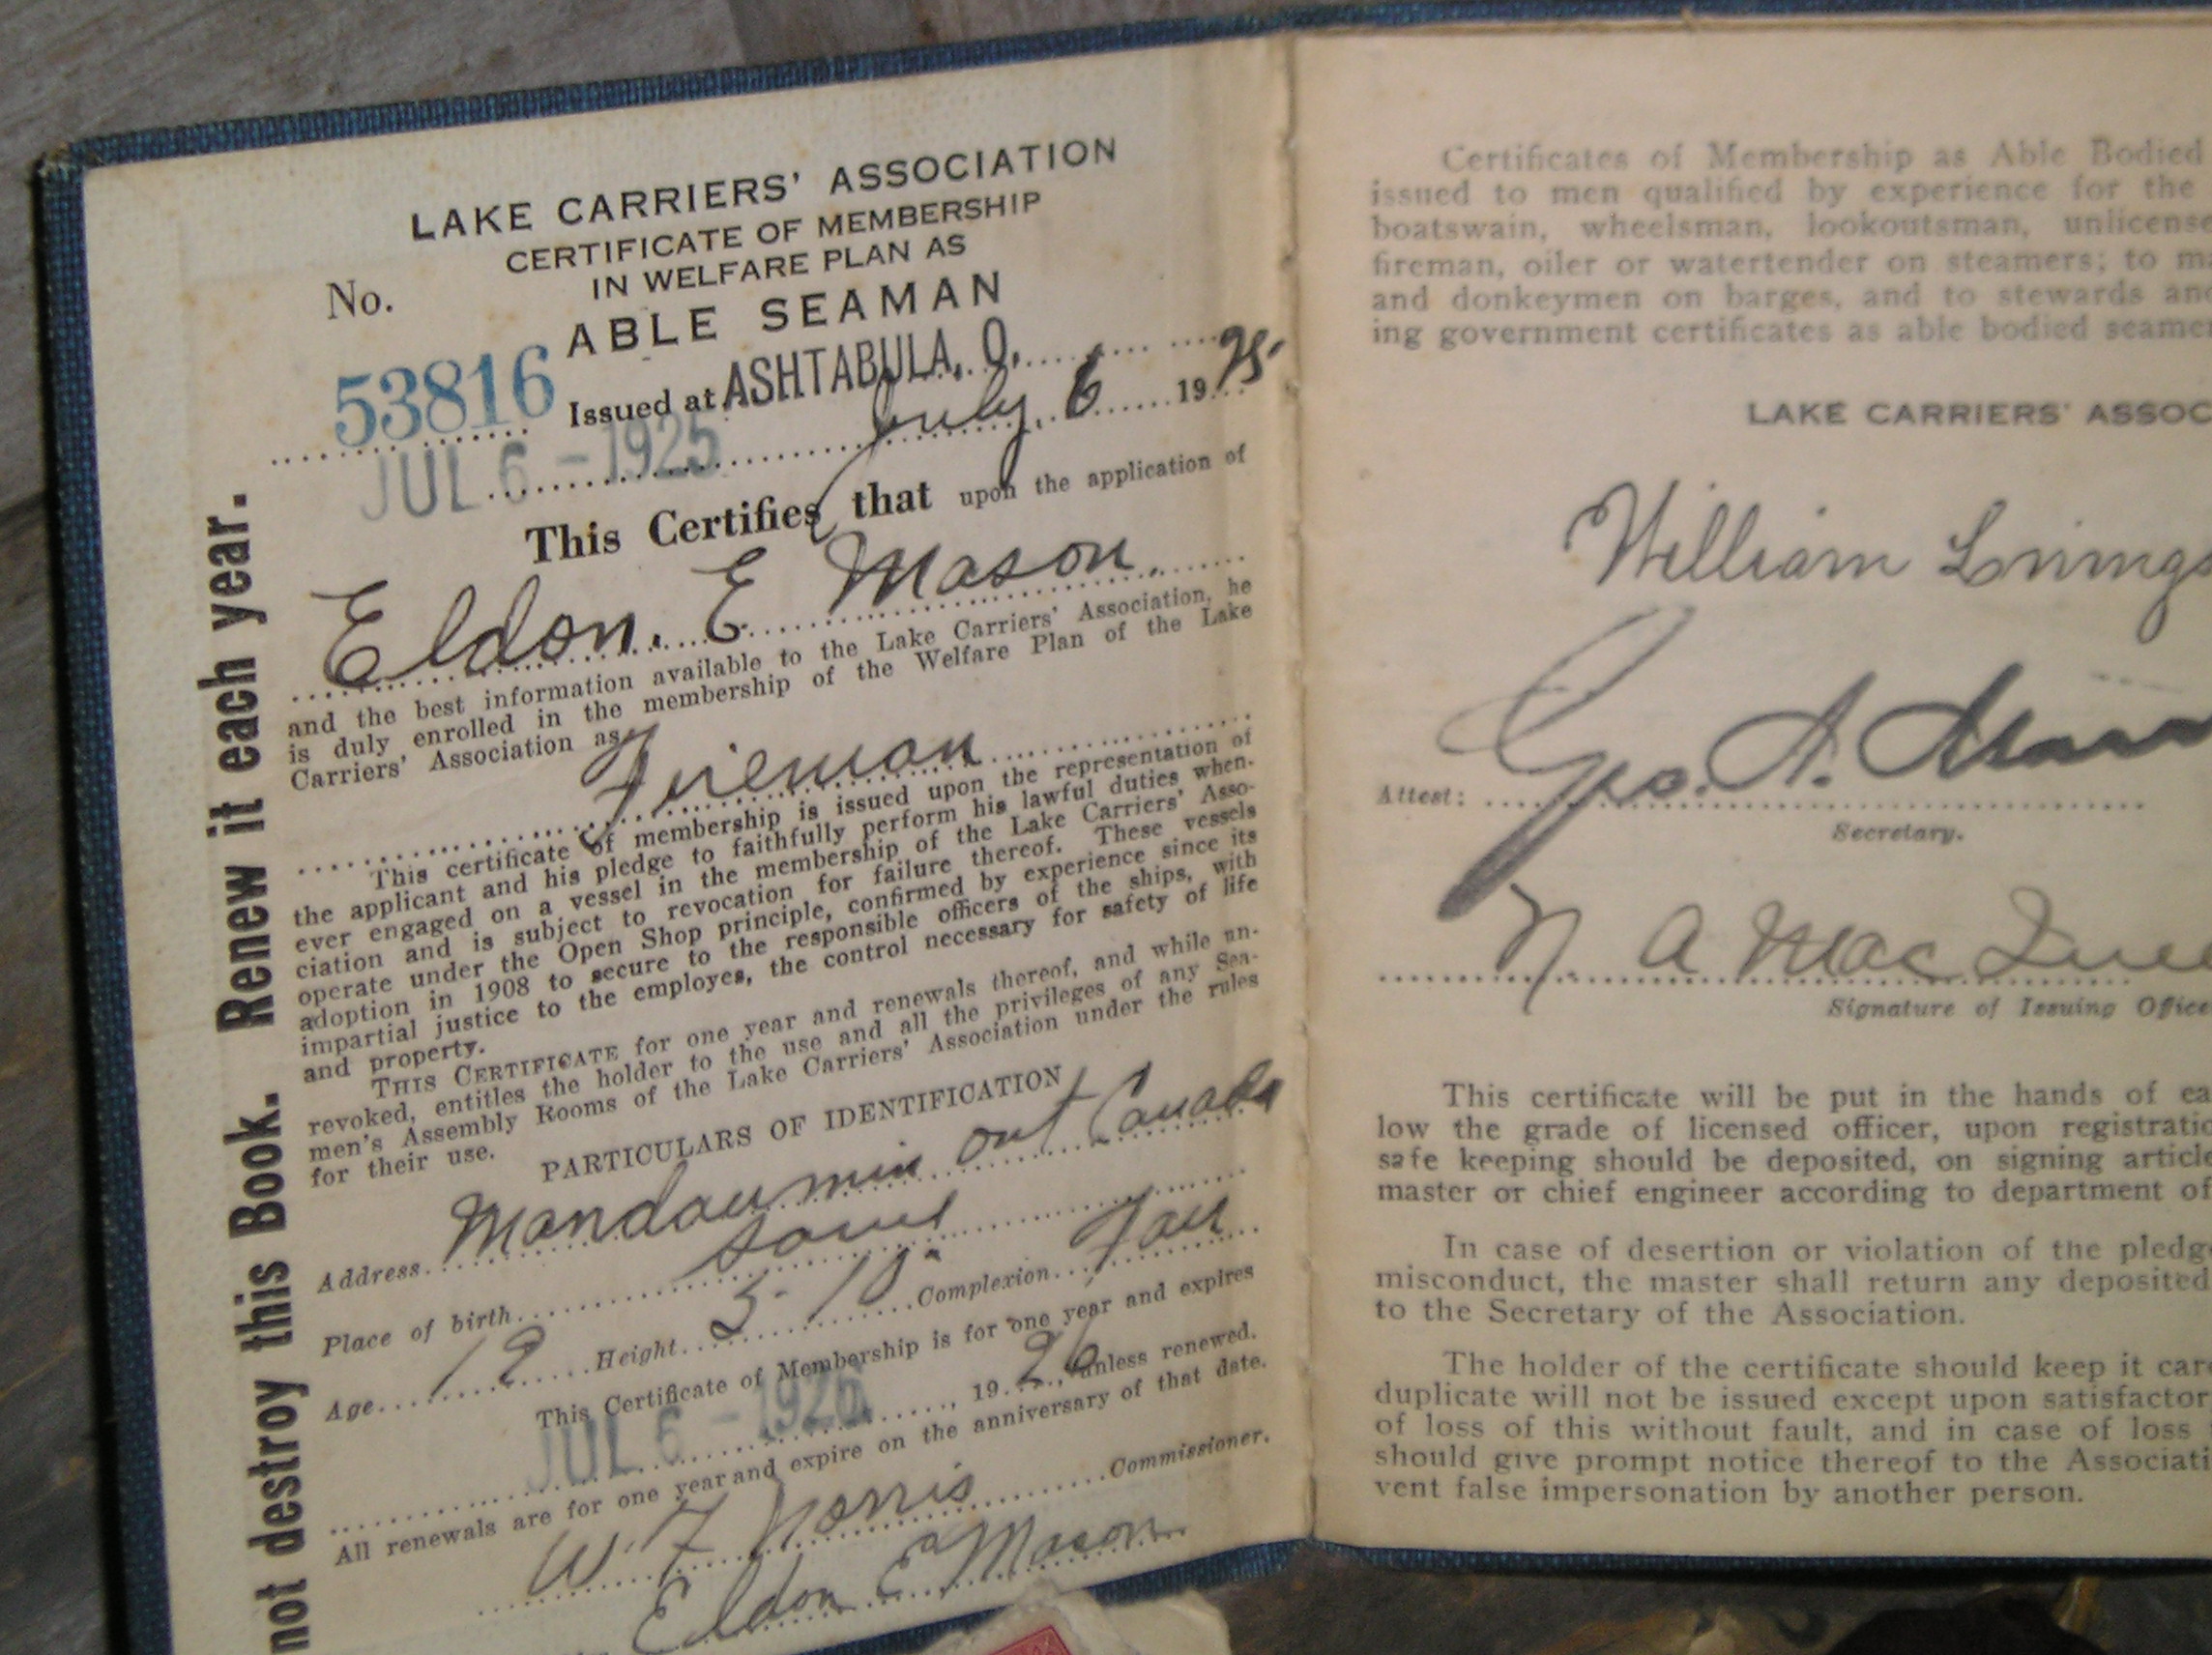 LAKE CARRIERS' ASSOCIATION
CERTIFICATE OF MEMBERSHIP
IN WELFARE PLAN AS
ABLE SEAMAN
No.
53816
Issued at ASHTABULA, O.
July, 6 1925
JUL 6 - 1925
This Certifies that upon the application of
Eldon. E Mason.
and the best information available to the Lake Carriers' Association, he
is duly enrolled in the membership of the Welfare Plan of the Lake
Carriers' Association as
Fireman
This certificate of membership is issued upon the representation of
the applicant and his pledge to faithfully perform his lawful duties when-
ever engaged on a vessel in the membership of the Lake Carriers' Asso-
ciation and is subject to revocation for failure thereof. These vessels
operate under the Open Shop principle, confirmed by experience since its
adoption in 1908 to secure to the responsible officers of the ships, with
impartial justice to the employes, the control necessary for safety of life
and property.
THIS CERTIFICATE for one year and renewals thereof, and while un-
revoked, entitles the holder to the use and all the privileges of any Sea-
men's Assembly Rooms of the Lake Carriers' Association under the rules
for their use.
PARTICULARS OF IDENTIFICATION
Address Mandaumin ont Canada
Place of birth same
Age Height 5-10 Complexion Fair
This Certificate of Membership is for one year and expires
JUL 6 - 1926, 1926, unless renewed.
All renewals are for one year and expire on the anniversary of that date.
W. F Norris Commissioner.
Eldon E Mason
not destroy this Book. Renew it each year.
Certificates of Membership as Able Bodied
issued to men qualified by experience for the
boatswain, wheelsman, lookoutsman, unlicense
fireman, oiler or watertender on steamers; to ma
and donkeymen on barges, and to stewards and
ing government certificates as able bodied seamen
LAKE CARRIERS' ASSOC
William Livings
Attest: Geo. A. Marr
Secretary.
N. A MacQuee
Signature of Issuing Office
This certificate will be put in the hands of ea
low the grade of licensed officer, upon registratio
safe keeping should be deposited, on signing article
master or chief engineer according to department of
In case of desertion or violation of the pledge
misconduct, the master shall return any deposited
to the Secretary of the Association.
The holder of the certificate should keep it care
duplicate will not be issued except upon satisfactor
of loss of this without fault, and in case of loss
should give prompt notice thereof to the Associati
vent false impersonation by another person.